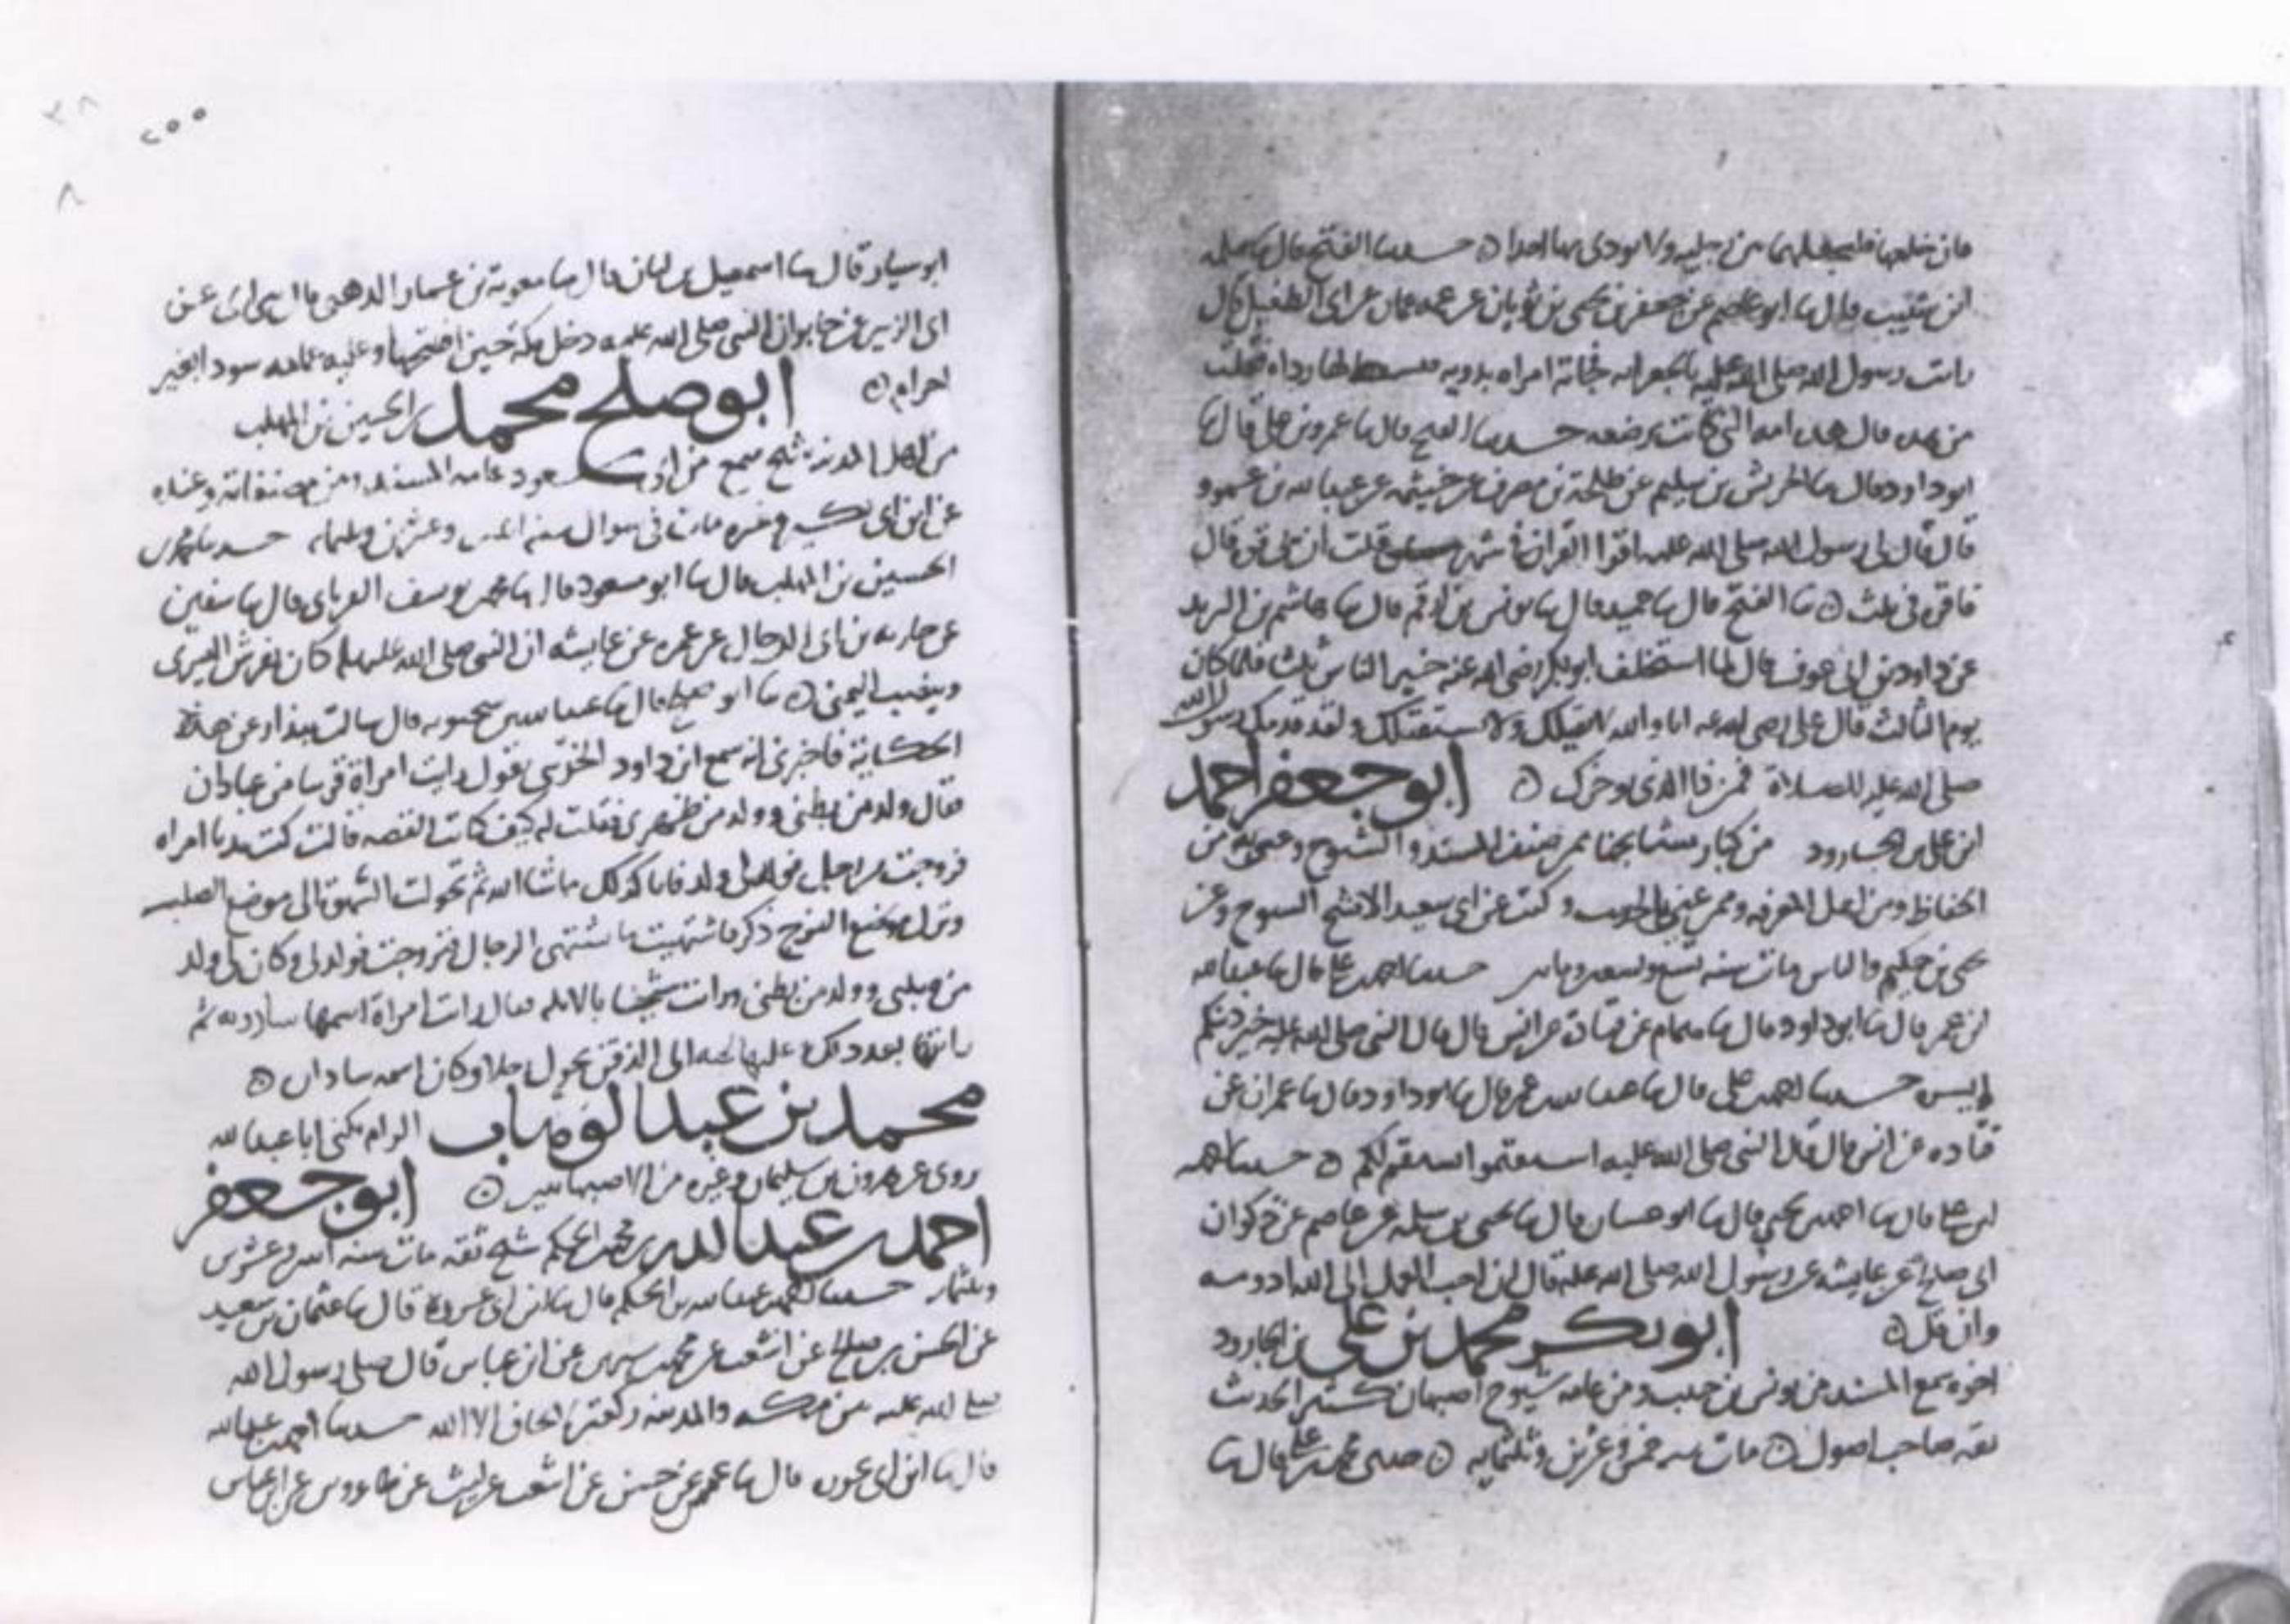 فان خلعها فليجعلهما من رجليه ولا يودي بهما احدا ه حدثنا الفتح قال ثنا سلمه
ابن شبيب قال ثنا ابو عاصم عن جعفر بن يحيى بن ثوبان عن عمه عماره عن ابي الطفيل قال
رايت رسول الله صلى الله عليه بالجعرانه فجاته امراه بدويه فبسط لها رداه فقلت
من هذه قال هذه امه التي كانت ترضعه حدثنا الفتح قال ثنا عمرو بن علي قال ثنا
ابو داود قال ثنا الحريش بن سليم عن طلحة بن مصرف عن خيثمه عن عبدالله بن عمرو
قال قال لي رسول الله صلى الله عليه اقرا القران في شهر قلت ان بي قوة قال
فاقره في ثلث ه ثنا الفتح قال ثنا حميد قال ثنا يونس بن ارقم قال ثنا هاشم بن البريد
عن داود بن ابي عوف قال لما استخلف ابو بكر رضي الله عنه خير الناس ثلثا فلما كان
يوم الثالث قال علي رضي الله عنه اما والله لا نقيلك ولا نستقيلك ولقد قدمك رسول الله
صلى الله عليه للصلاة فمن ذا الذي يوخرك ه ابو جعفر احمد
ابن علي بن الجارود من كبار مشايخنا ممن صنف المسند والشيوخ وعني به من
الحفاظ ومن اهل المعرفه وممن عني بالحديث وكتب عن ابي سعيد الاشج الشيوخ وعن
يحيى بن حكيم والناس مات سنه تسع وتسعين ومايتين حدثنا احمد بن علي قال ثنا عبدالله
ابن عمر قال ثنا ابو داود قال ثنا همام عن قتادة عن انس قال قال النبي صلى الله عليه خير دينكم
ايسره حدثنا احمد بن علي قال ثنا عبدالله بن عمر قال ثنا ابو داود قال ثنا عمران عن
قتاده عن انس قال قال النبي صلى الله عليه استقيموا يستقم لكم ه حدثنا احمد
ابن علي قال ثنا احمد بن يحيى قال ثنا ابو غسان قال ثنا يحيى بن سلمه عن عاصم عن ذكوان
ابي صالح عن عايشه عن رسول الله صلى الله عليه قال ان احب العمل الى الله ادومه
وان قل ه ابو بكر محمد بن علي بن الجارود
اخوه سمع المسند من يونس بن حبيب ومن عامه شيوخ اصبهان كثير الحديث
ثقه صاحب اصول ه مات سنه خمس وعشرين وثلثمايه ه حدثني محمد بن علي قال ثنا
٢٥٥
ابو سيار قال ثنا اسمعيل بن ابان قال ثنا معوية بن عمار الدهني عن
ابي الزبير عن جابر ان النبي صلى الله عليه دخل مكة حين افتتحها وعليه عمامه سودا بغير
احرام ه ابو صلح محمد بن الحسين بن المهلب
من اهل المدينه شيخ سمع من ابي مسعود عامه المسند ومن مصنفاته وعنده
عن ابن ابي بكير وغيره مات في شوال سنه اثنين وعشرين وثلثمايه حدثنا محمد بن
الحسين بن المهلب قال ثنا ابو مسعود قال ثنا محمد بن يوسف الفريابي قال ثنا سفين
عن حارثه بن ابي الرجال عن عمره عن عايشه ان النبي صلى الله عليه وسلم كان يفرش اليسرى
وينصب اليمنى ه ثنا ابو صلح قال ثنا عبدالله بن محمويه قال سالت بندار عن هذه
الحكاية فاخبرني انه سمع ابن داود الخريبي يقول رايت امراة قريبا من عبادان
فقال ولد من بطني وولد من ظهري فقلت له كيف كانت القصه قالت كنت بديا امراه
فزوجت من رجل فولد لي ولد فاما كذلك ماشا الله ثم تحولت الشهوة الى موضع الصلب
ونزل موضع الفرج ذكر فاشتهيت ما يشتهي الرجال فتزوجت فولد لي وكان لي ولد
من صلبي وولد من بطني ورايت شيخا بالابله قال رايت امراة اسمها سادويه ثم
رايتها بعد ذلك عليها لحيه الى الذقن تحول رجلا وكان اسمه ساذان ه
محمد بن عبد الوهاب الوام يكنى ابا عبدالله
روى عن هرون بن سليمان وغيره من الاصبهانيين ه ابو جعفر
احمد بن عبد الله بن محمد بن الحكم شيخ ثقه مات سنه اثنين وعشرين
وثلثمايه حدثنا احمد بن عبدالله بن الحكم قال ثنا ابن ابي غرزة قال ثنا عثمان بن سعيد
عن الحسن بن صالح عن اشعث عن محمد بن سيرين عن ابن عباس قال صلى رسول الله
صلى الله عليه بين مكه والمدينه ركعتين لا يخاف الا الله حدثنا احمد بن عبدالله
قال ثنا ابن ابي عون قال ثنا عمر عن حسن عن اشعث عن ليث عن طاووس عن ابن عباس